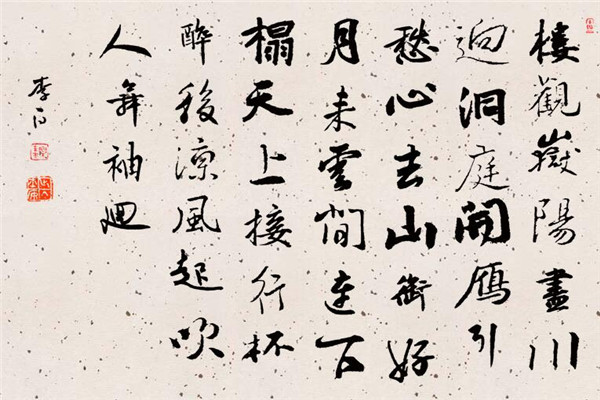 樓觀嶽陽盡川
迥洞庭開鴈引
愁心去山銜好
月来雲間連下
榻天上接行杯
醉後涼風起吹
人舞袖廻
李